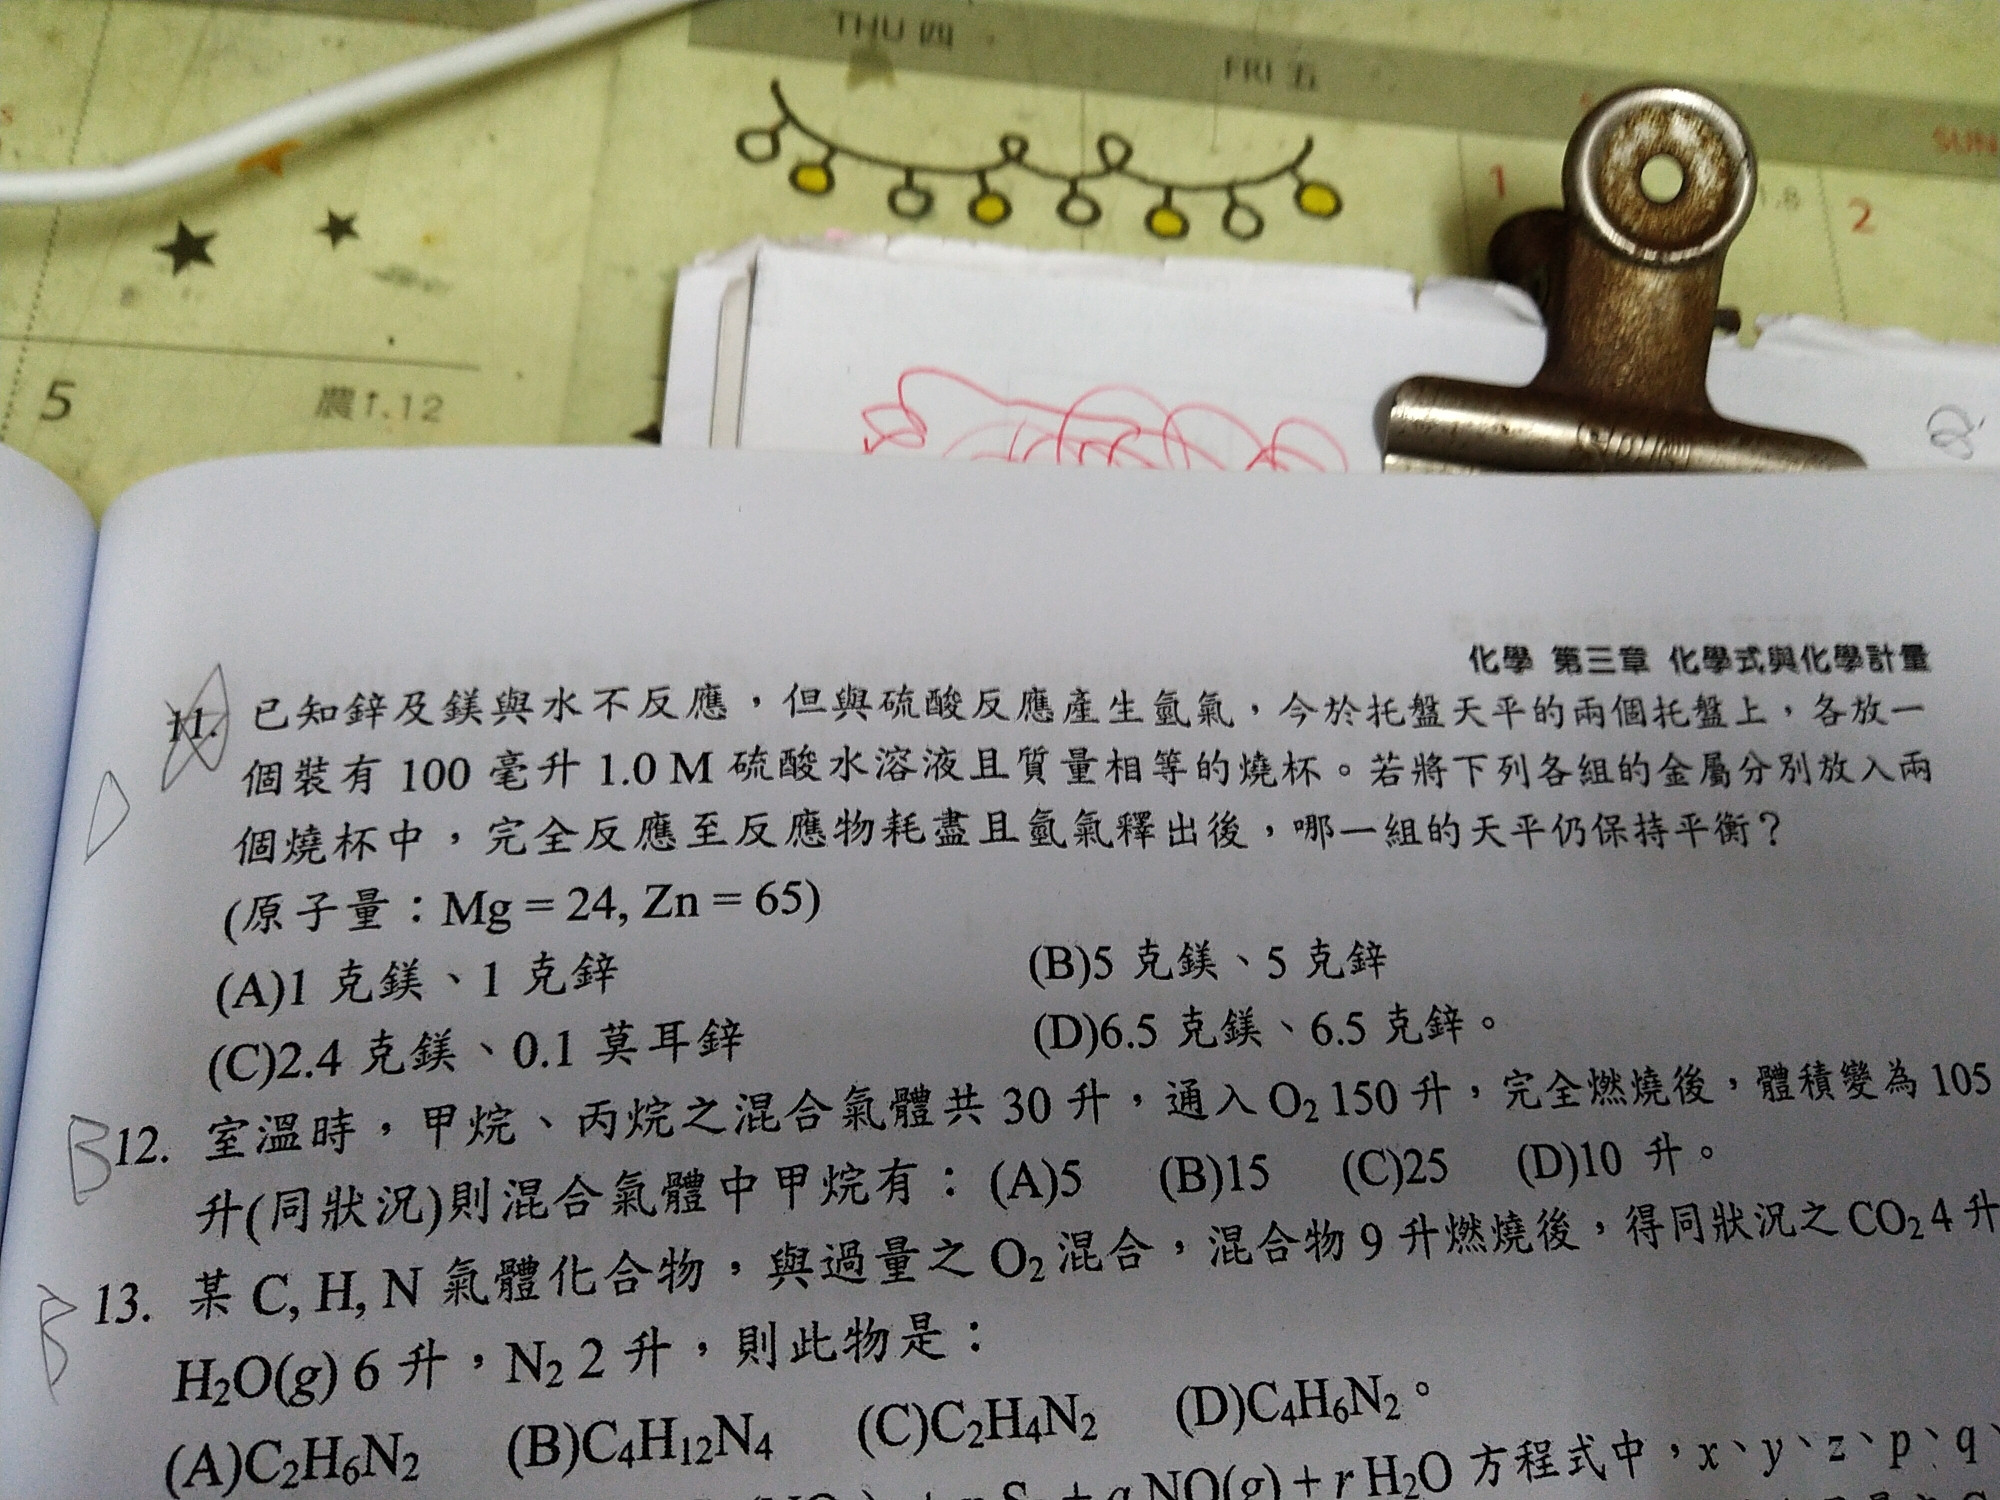 THU 四
FRI 五
SUN
1
1.8
2
5
農1.12
化學 第三章 化學式與化學計量
11. 已知鋅及鎂與水不反應，但與硫酸反應產生氫氣，今於托盤天平的兩個托盤上，各放一
個裝有 100 毫升 1.0 M 硫酸水溶液且質量相等的燒杯。若將下列各組的金屬分別放入兩
個燒杯中，完全反應至反應物耗盡且氫氣釋出後，哪一組的天平仍保持平衡？
(原子量：Mg = 24, Zn = 65)
(A)1 克鎂、1 克鋅 (B)5 克鎂、5 克鋅
(C)2.4 克鎂、0.1 莫耳鋅 (D)6.5 克鎂、6.5 克鋅。
D
B 12. 室溫時，甲烷、丙烷之混合氣體共 30 升，通入 O₂ 150 升，完全燃燒後，體積變為 105
升(同狀況)則混合氣體中甲烷有：(A)5 (B)15 (C)25 (D)10 升。
B 13. 某 C, H, N 氣體化合物，與過量之 O₂ 混合，混合物 9 升燃燒後，得同狀況之 CO₂ 4 升
H₂O(g) 6 升，N₂ 2 升，則此物是：
(A)C₂H₆N₂ (B)C₄H₁₂N₄ (C)C₂H₄N₂ (D)C₄H₆N₂。
q NO(g) + r H₂O 方程式中，x、y、z、p、q、